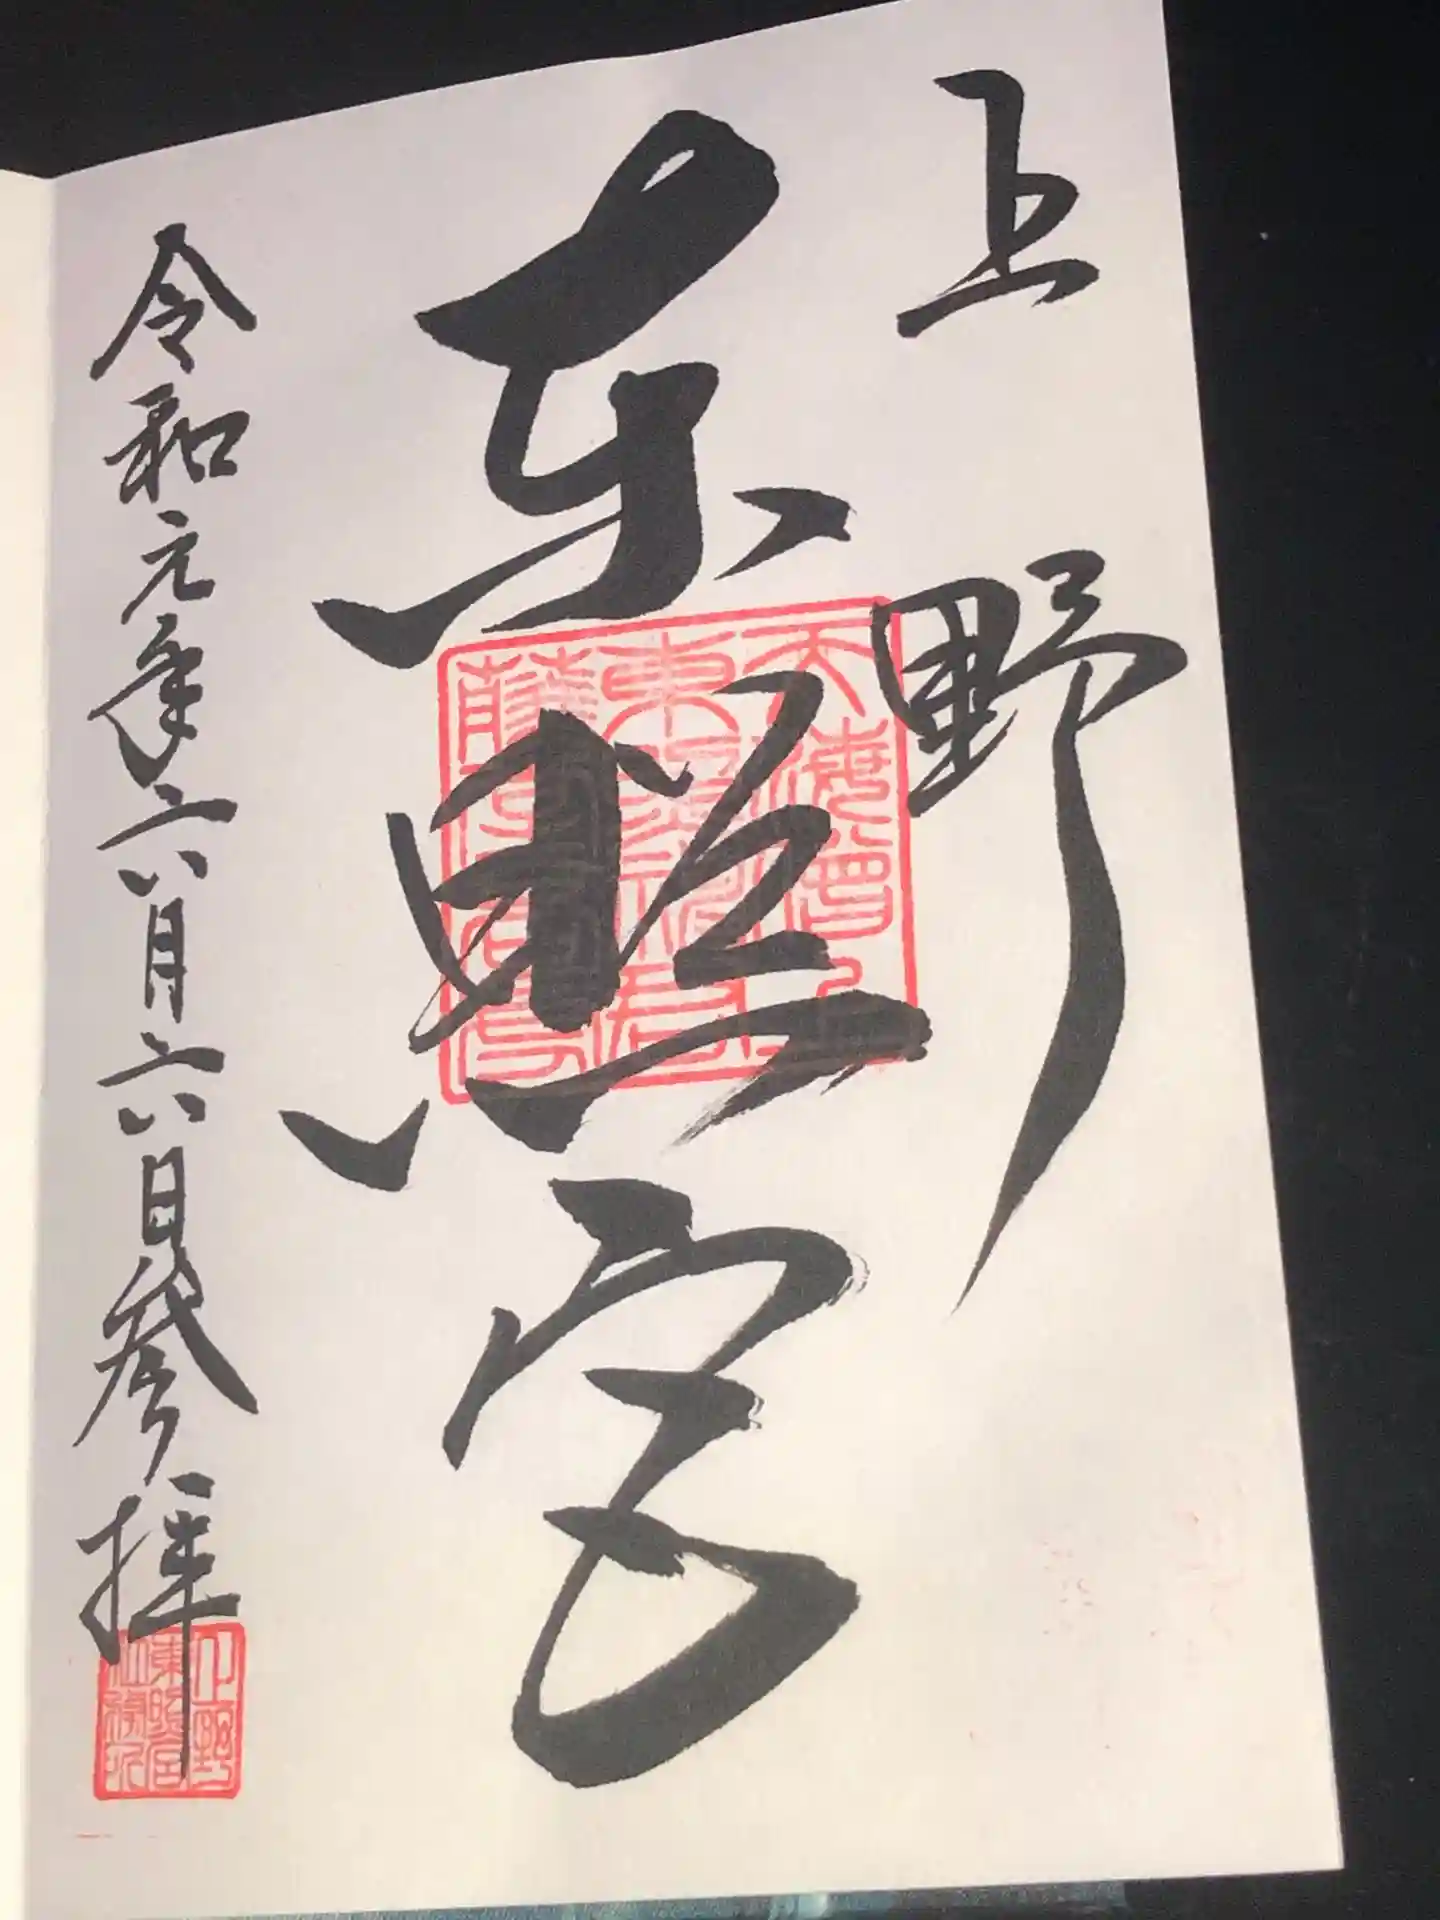 上野
東照宮
令和元年六月六日参拝
上野東照宮社務所